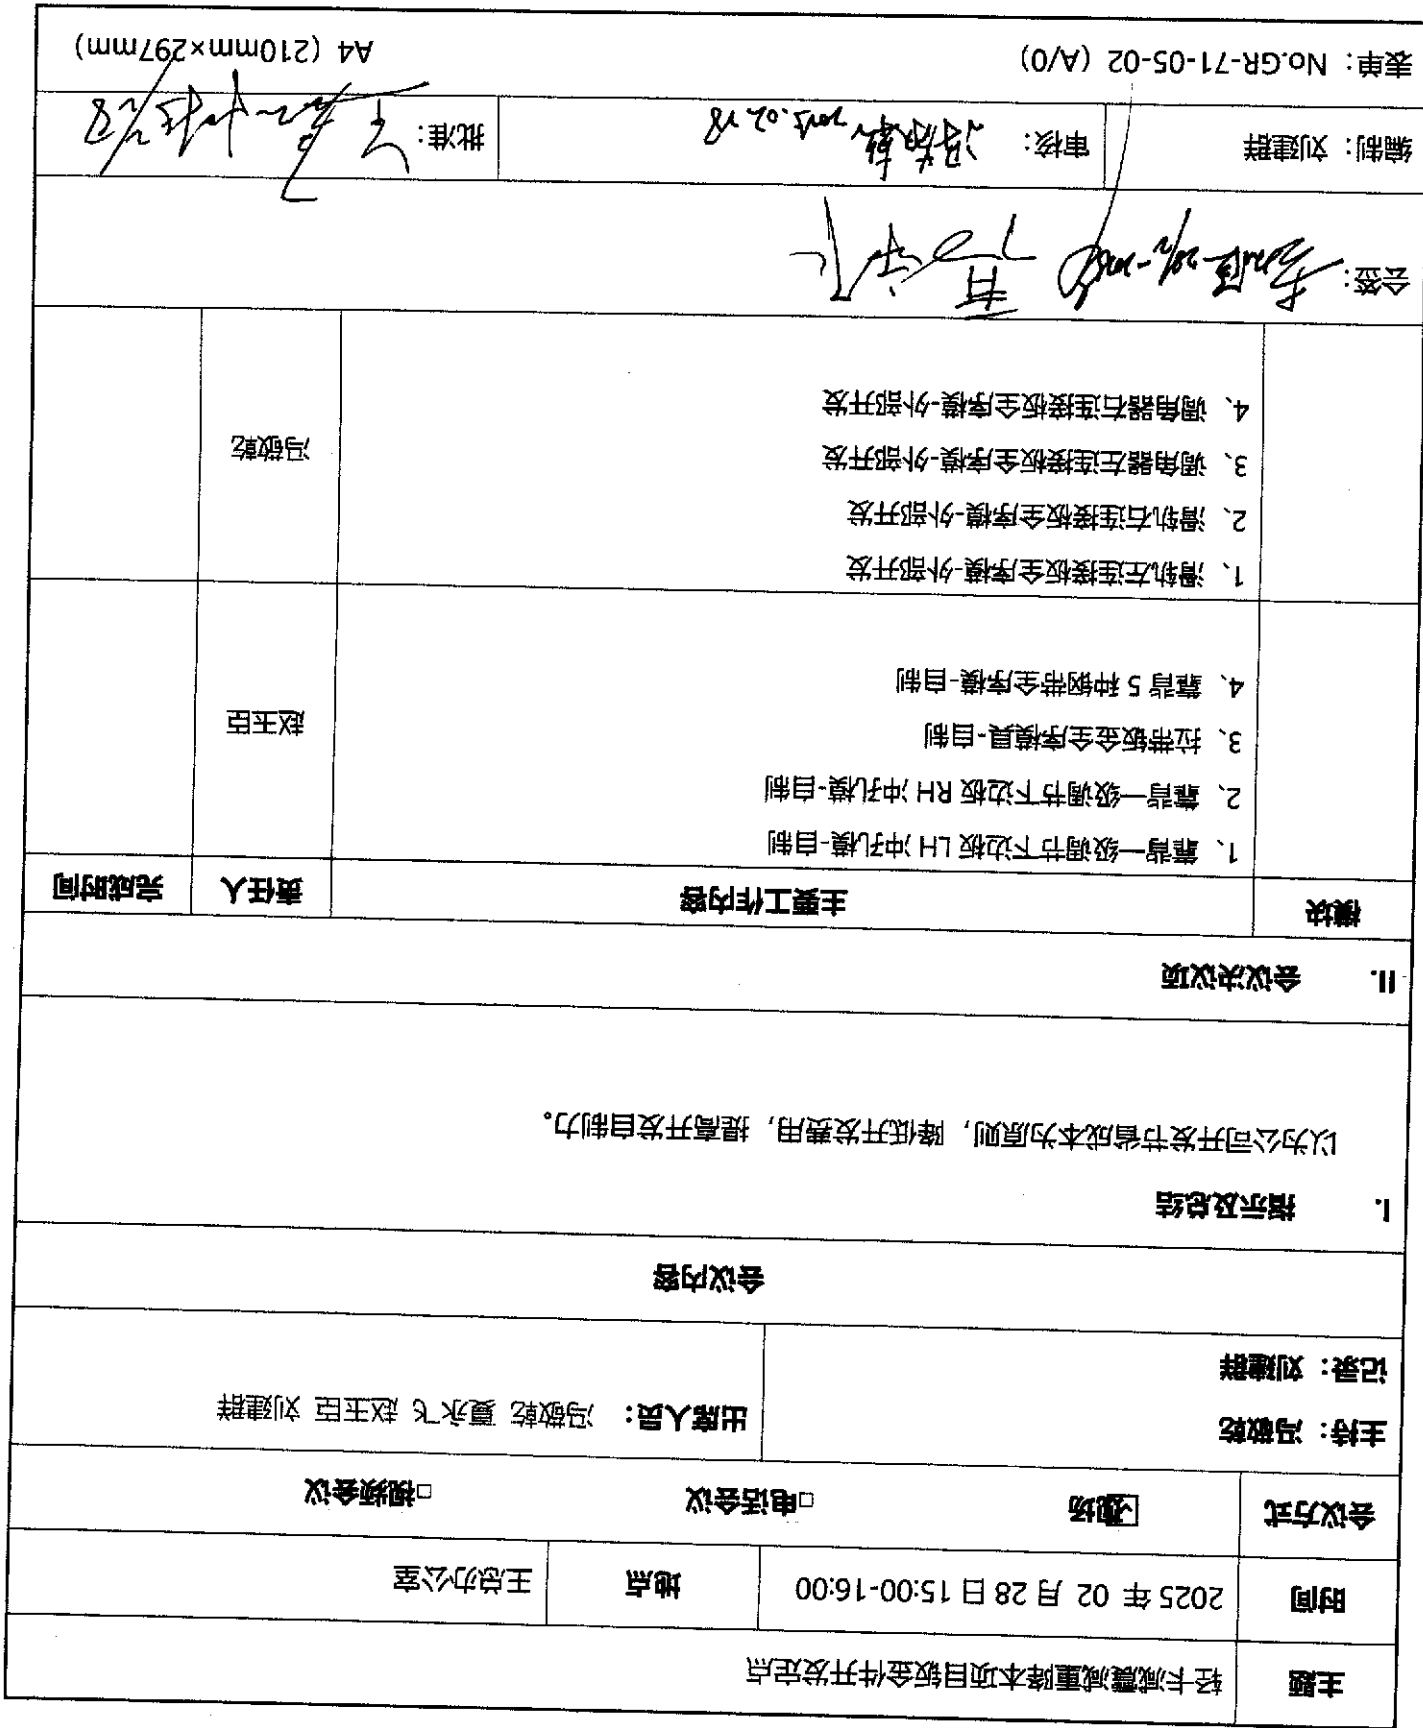 主题 轻卡减震减重降本项目钣金件开发定点
时间 2025 年 02 月 28 日 15:00-16:00 地点 王总办公室
会议方式 ☑现场 □电话会议 □视频会议
主持：冯敬乾
记录：刘建群
出席人员：冯敬乾 夏永飞 赵玉臣 刘建群
会议内容
I. 指示及总结
以为公司开发节省成本为原则，降低开发费用，提高开发自制力。
II. 会议决议项
模块 主要工作内容 责任人 完成时间
1、 靠背一级调节下边板 LH 冲孔模-自制
2、 靠背一级调节下边板 RH 冲孔模-自制
3、 拉带钣金全序模具-自制
4、 靠背 5 种钢带全序模-自制
赵玉臣
1、 滑轨左连接板全序模-外部开发
2、 滑轨右连接板全序模-外部开发
3、 调角器左连接板全序模-外部开发
4、 调角器右连接板全序模-外部开发
冯敬乾
会签：
编制：刘建群 审核：冯敬乾 2025.02.28 批准：
表单：No.GR-71-05-02 (A/0) A4 (210mm×297mm)